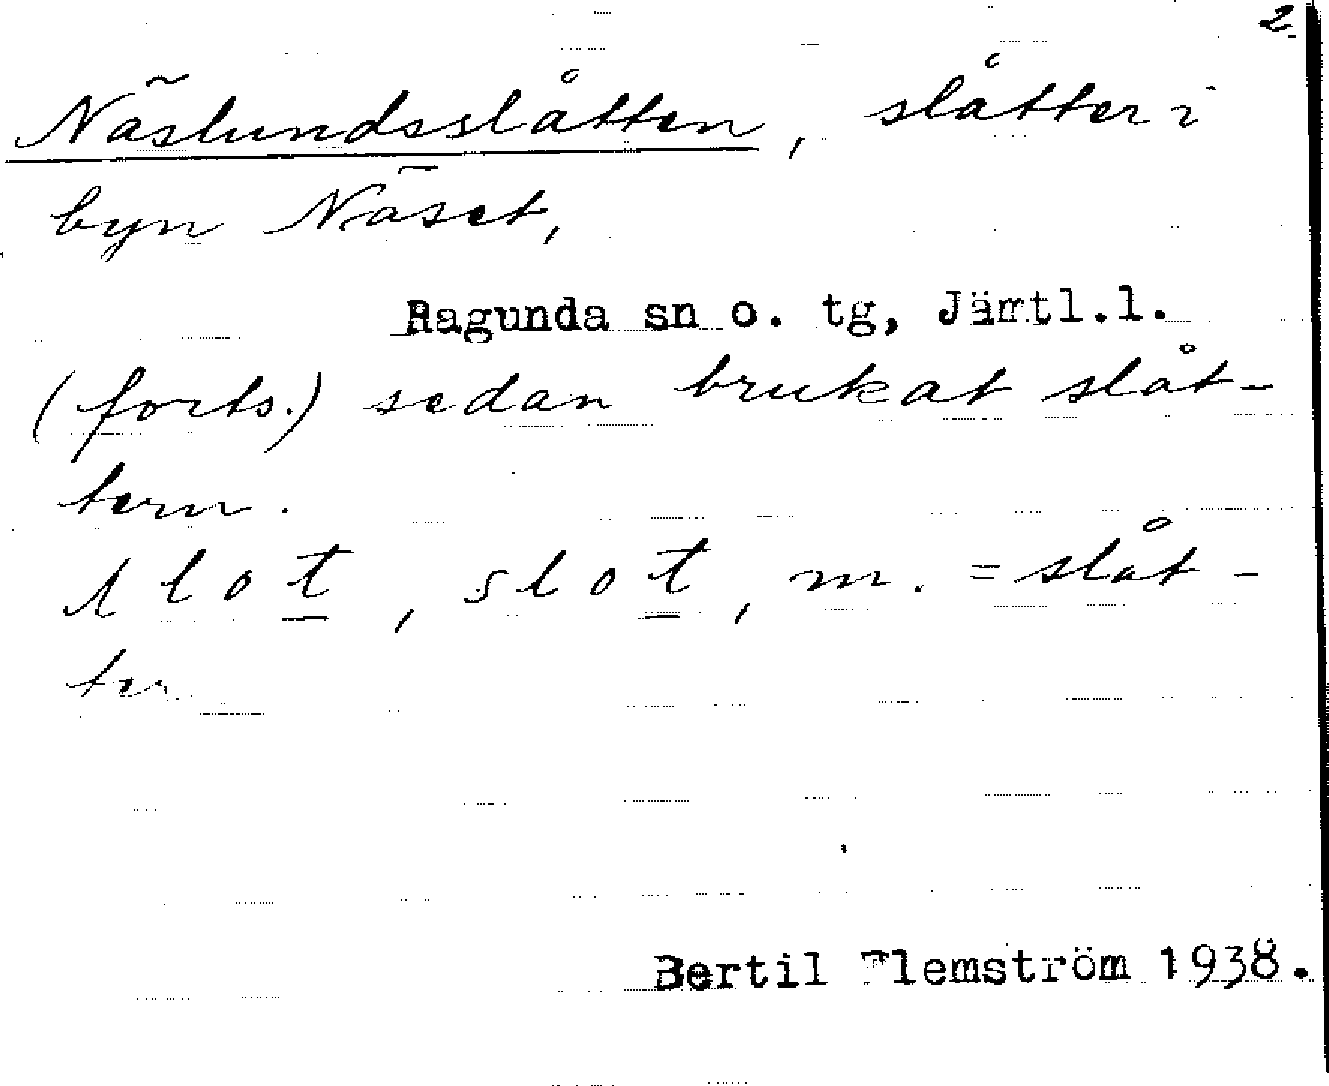 2.
Näslundsslåtten, slåtter i
byn Näset,
Ragunda sn o. tg, Jämtl.l.
(forts.) sedan brukat slåt-
tern.
slot, slot, m. = slåt-
ter.
Bertil Flemström 1938.